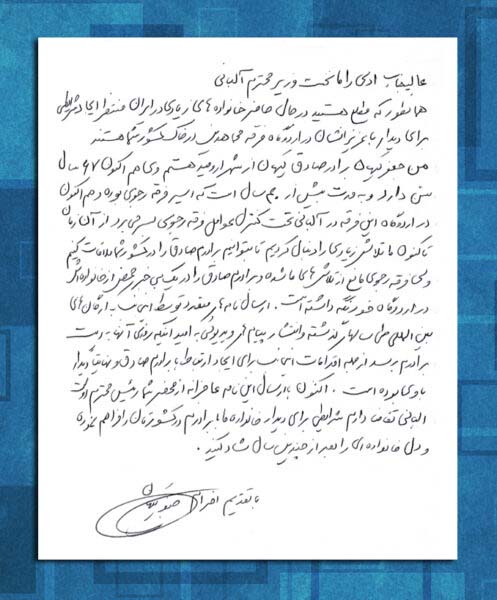 عالیجناب ادی راما نخست وزیر محترم آلبانی
همانطور که مطلع هستید در حال حاضر خانواده های زیادی در ایران منتظر ایجاد شرایطی
برای دیدار با عزیزانشان در اردوگاه فرقه مجاهدین در خاک کشور شما هستند
من صفر کیهان برادر صادق کیهان از شهر ارومیه هستم وی هم اکنون ۶۷ سال
سن دارد و به مدت بیش از سال است که اسیر فرقه رجوی بوده و هم اکنون
در اردوگاه این فرقه در آلبانی تحت کنترل عوامل فرقه رجوی بسر می برد از آن زمان
تاکنون ما تلاش زیادی را دنبال کردیم تا بتوانیم برادرم صادق را در کشور شما ملاقات کنیم
ولی فرقه رجوی مانع از تلاش های ما شده و برادرم صادق را در یک بی خبری محض از خانواده اش
در اردوگاه خود نگه داشته است. ارسال نامه های متعدد توسط اینجانب به ارگان های
بین المللی طی سالهای گذشته و انتشار پیام های ویدئویی به امید اینکه روزی آنها به دست
برادرم برسد از جمله اقدامات اینجانب برای ایجاد ارتباط با برادرم صادق و نهایتا دیدار
با وی بوده است. اکنون با ارسال این نامه عاجزانه از محضر شما رئیس محترم دولت
آلبانی تقاضا دارم شرایطی برای دیدار خانواده ما با برادرم در کشورتان را فراهم نموده
و دل خانواده ای را بعد از چندین سال شاد کنید.
با تقدیم احترام صفر کیهان